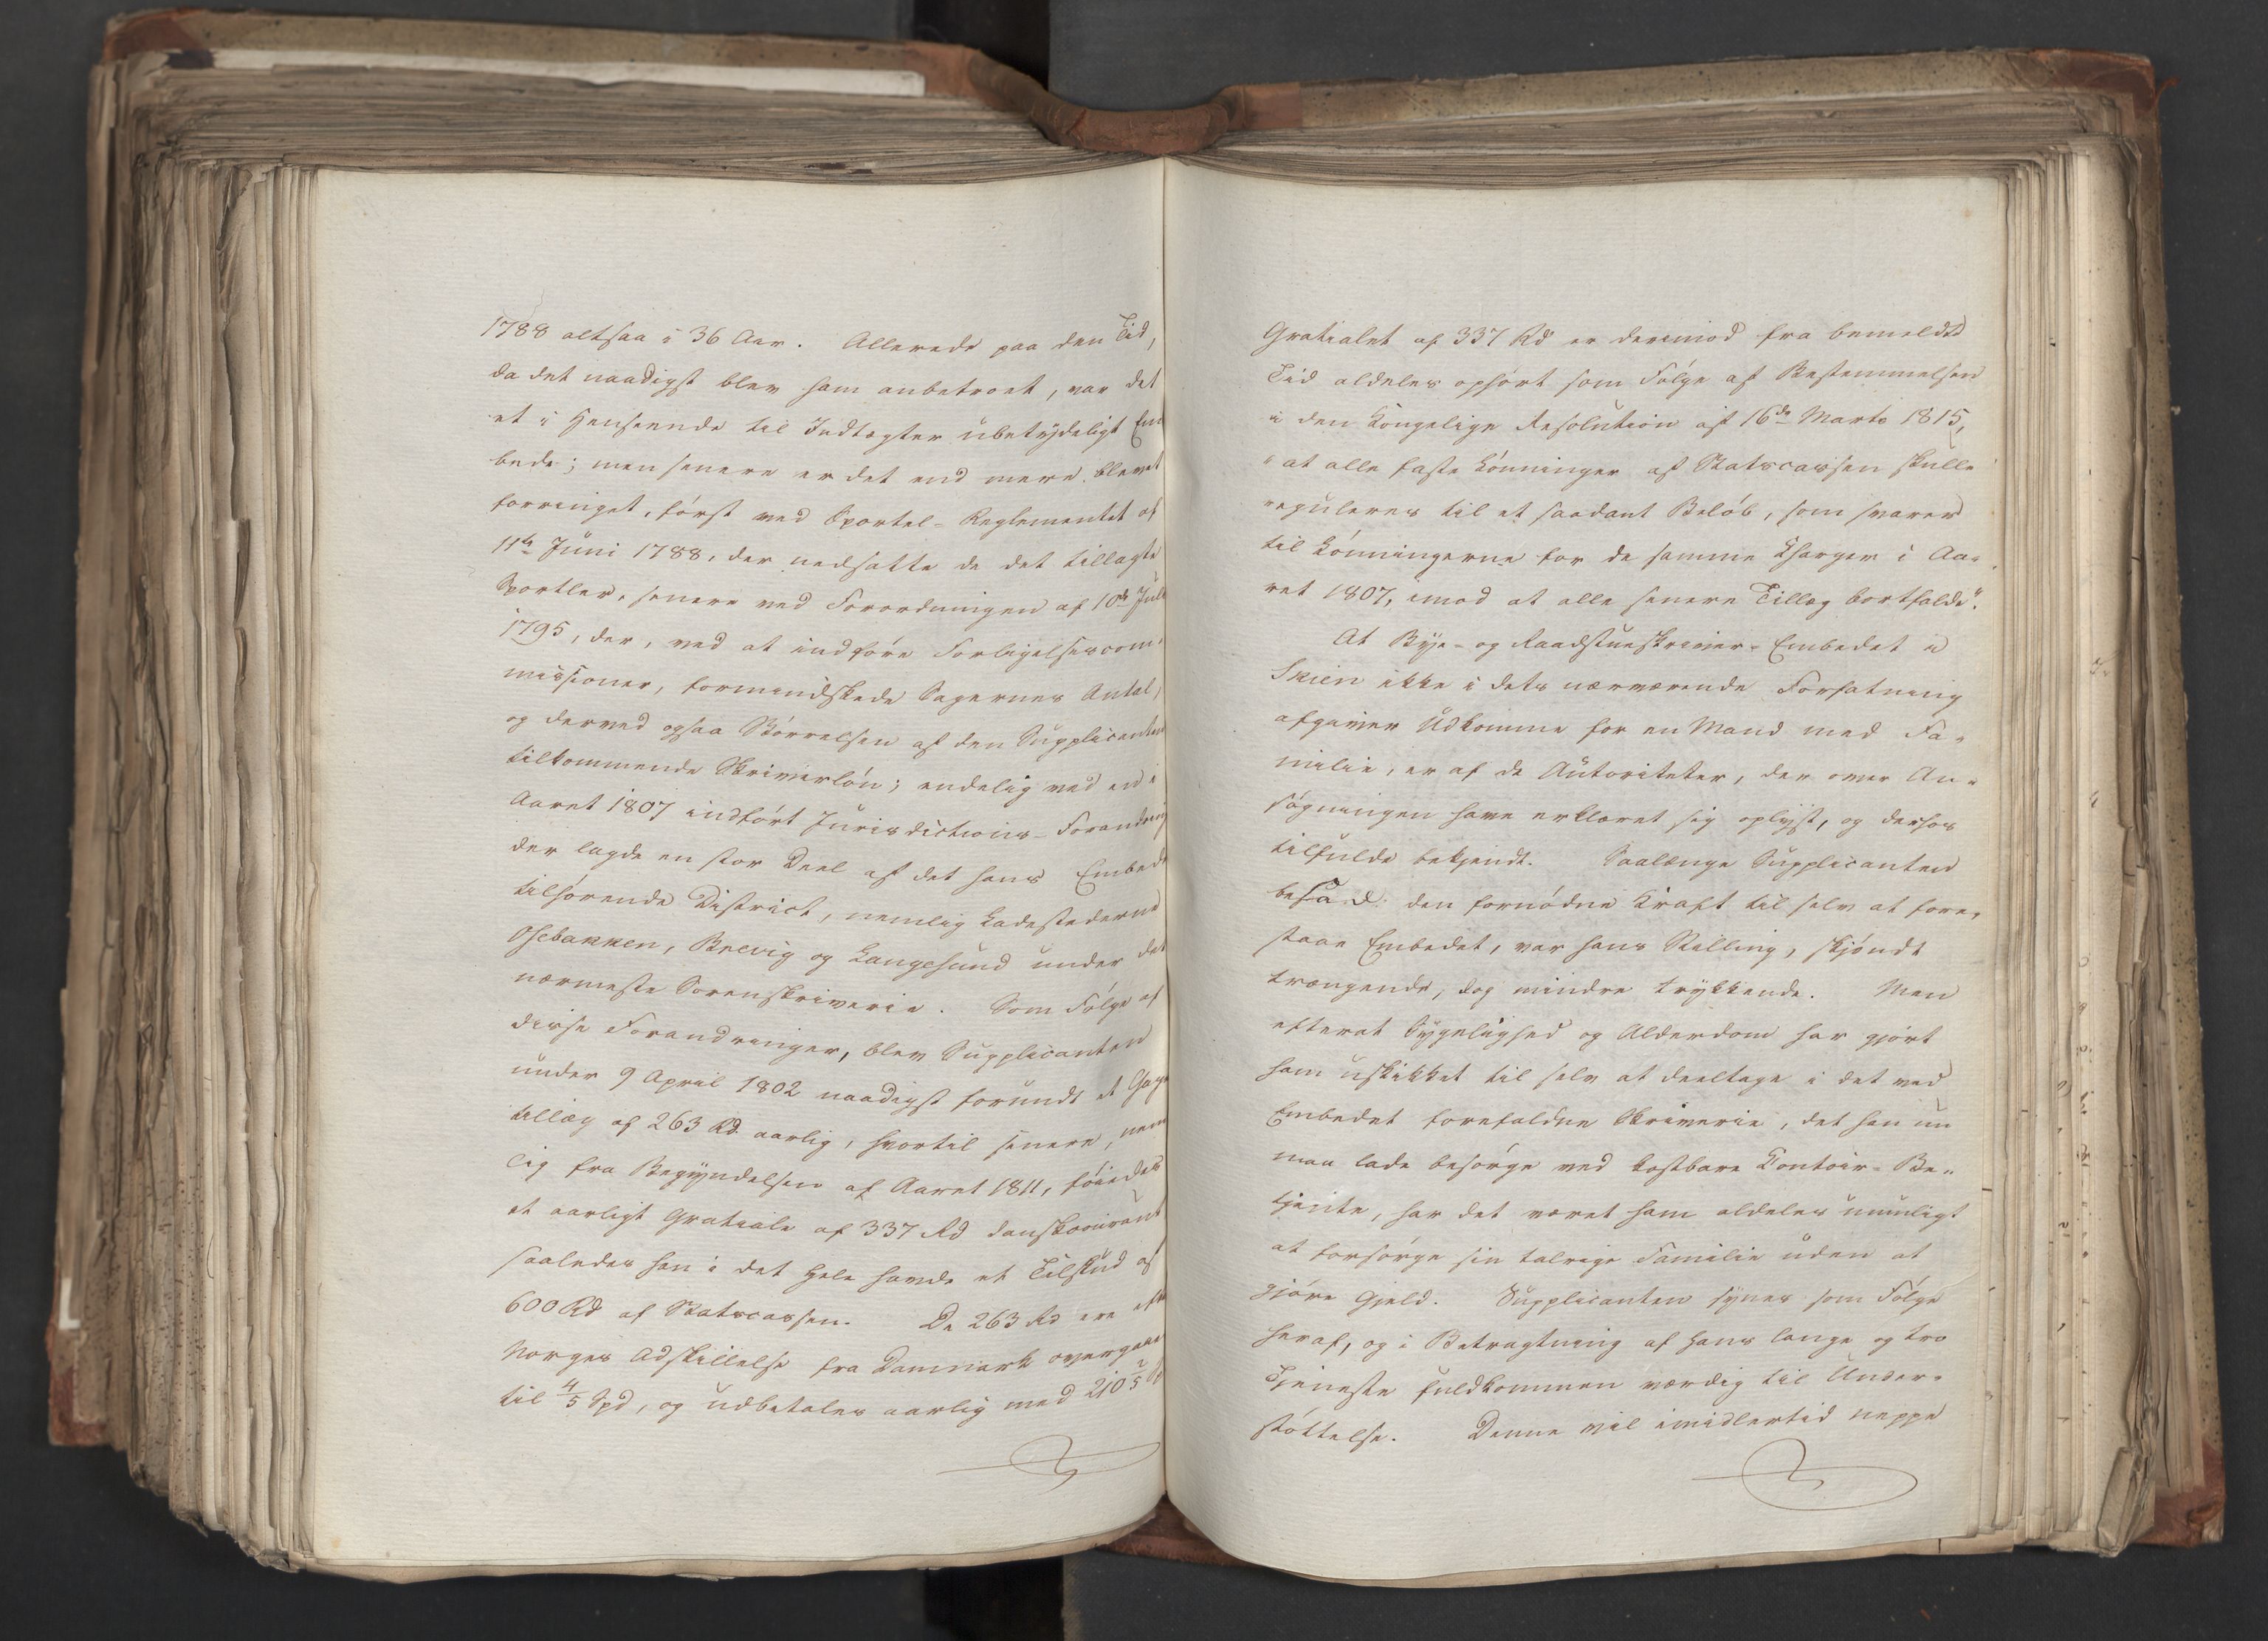 1788 altsaa i 36 Aar. Allerede paa den Tid,
da det naadigst blev ham anbetroet, var det
et i Henseende til Indtægter ubetydeligt Em
bede; men senere er det end mere blevet
forringet, først ved Sportel-Reglementet af
11te Juni 1788, der nedsatte de det tillagte
Sportler, senere ved Forordningen af 10de Juli
1795, der, ved at indføre Forligelsescom-
missioner, formindskede Sagernes Antal,
og derved ogsaa Størrelsen af den Supplicanten
tilkommende Skriverløn; endelig ved en i
Aaret 1807 indført Jurisdictions-Forandring
der lagde en stor Deel af det hans Embede
tilhørende District, nemlig Ladestederne
Osebakken, Brevig og Langesund under det
nærmeste Sorenskriverie. Som Følge af
disse Forandringer, blev Supplicanten
under 9 April 1802 naadigst forundt et Gage
tillæg af 263 Rd aarlig, hvortil senere, nem
lig fra Begyndelsen af Aaret 1811, føiedes
et aarligt Gratiale af 337 Rd dansk courant
saaledes han i det Hele havde et Tilskud af
600 Rd af Statscassen. De 263 Rd ere efter
Norges Adskillelse fra Danmark overgaaet
til 4/5 Spd, og udbetales aarlig med 210 2/5 Sp
Gratialet af 337 Rd er derimod fra bemeldte
Tid aldeles ophørt som Følge af Bestemmelsen
i den Kongelige Resolution af 16de Marts 1815,
"at alle faste Lønninger af Statscassen skulle
reguleres til et saadant Beløb, som svarer
til Lønningerne for de samme Charger i Aa-
ret 1807, imod at alle senere Tillæg bortfalde".
At Bye- og Raadstueskriver-Embedet i
Skien ikke i dets nærværende Forfatning
afgiver Udkomme for en Mand med Fa-
milie, er af de Autoriteter, der over An-
søgningen have erklæret sig oplyst, og derhos
tilfulde bekjendt. Saalænge Supplicanten
besad den fornødne Kraft til selv at fore-
staae Embedet, var hans Stilling, skjøndt
trængende, dog mindre trykkende. Men
efterat Sygelighed og Alderdom har gjort
ham uskikket til selv at deeltage i det ved
Embedet forefaldne Skriverie, det han nu
maa lade besørge ved kostbare Contoir-Be-
tjente, har det været ham aldeles umuligt
at forsørge sin talrige Familie uden at
gjøre Gjeld. Supplicanten synes som Følge
heraf, og i Betragtning af hans lange og tro
Tjeneste fuldkommen værdig til Under-
støttelse. Denne vil imidlertid neppe